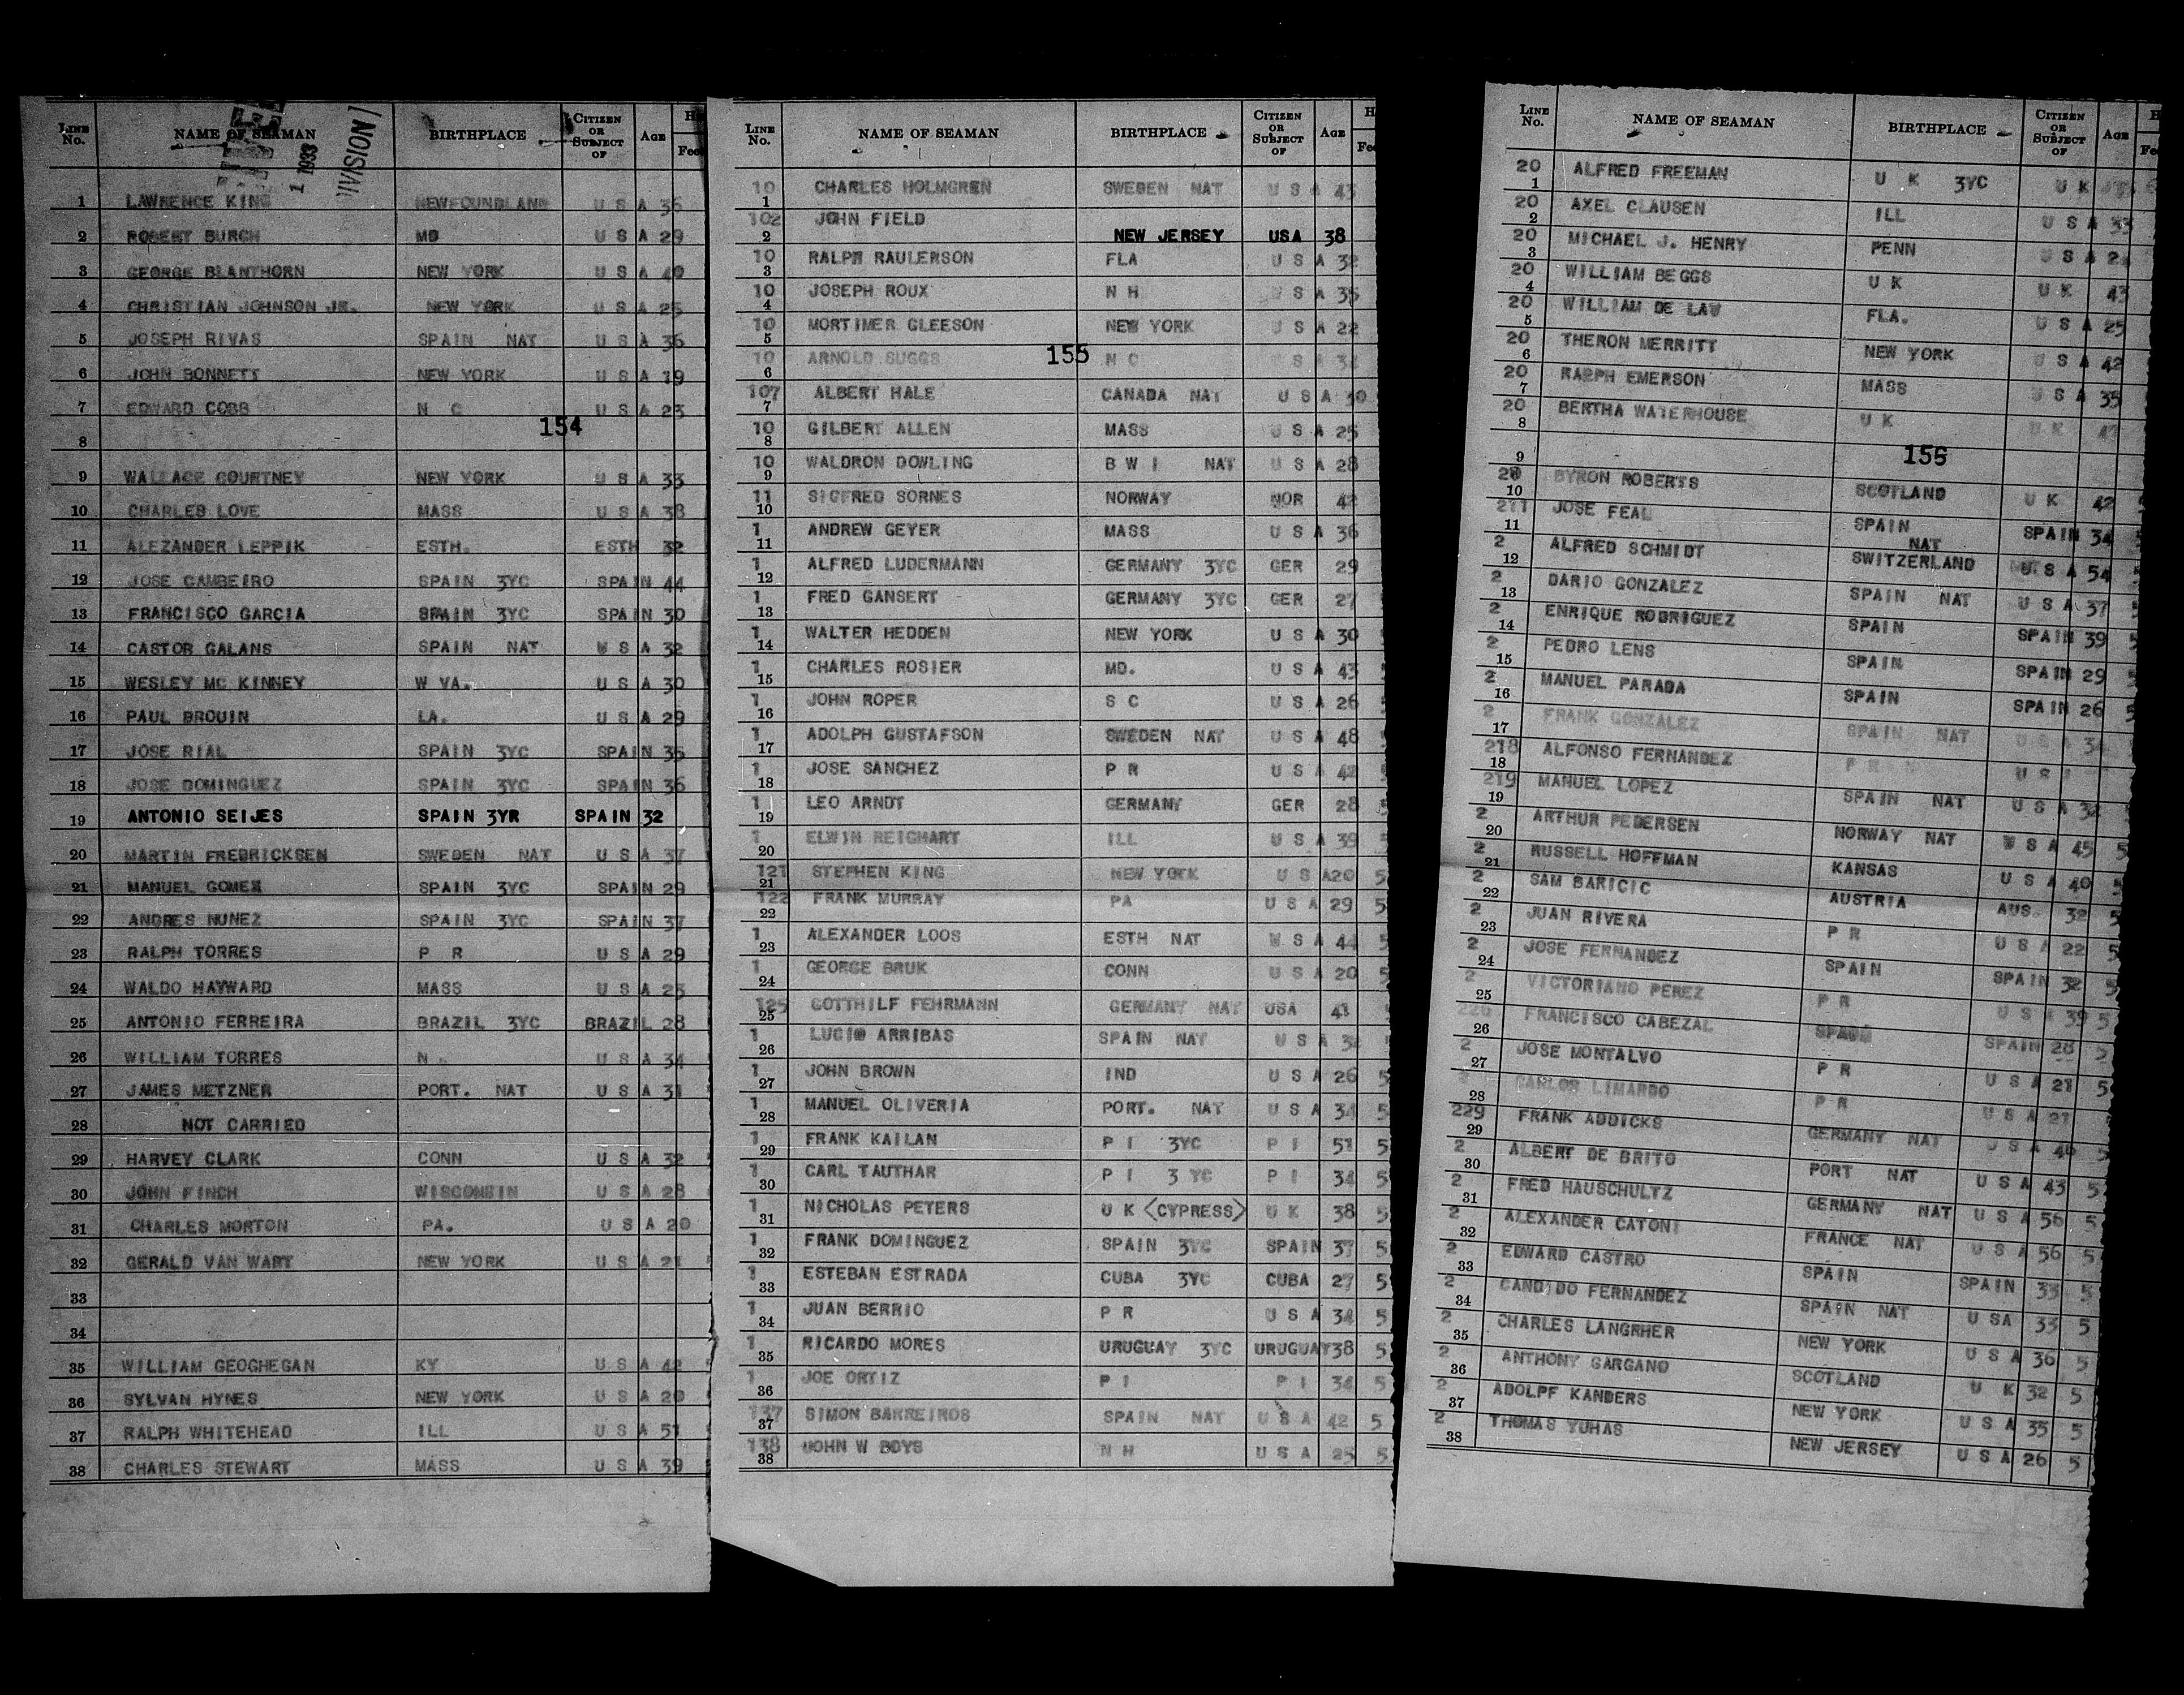 LINE No. NAME OF SEAMAN BIRTHPLACE CITIZEN OR SUBJECT OF AGE
1 1933
DIVISION
1 LAWRENCE KING NEWFOUNDLAND U S A 36
2 ROBERT BURCH MD U S A 29
3 GEORGE BLANTHORN NEW YORK U S A 40
4 CHRISTIAN JOHNSON JR. NEW YORK U S A 25
5 JOSEPH RIVAS SPAIN NAT U S A 36
6 JOHN BONNETT NEW YORK U S A 19
7 EDWARD COBB N C U S A 23
154
8
9 WALLACE COURTNEY NEW YORK U S A 33
10 CHARLES LOVE MASS U S A 38
11 ALEZANDER LEPPIK ESTH. ESTH 32
12 JOSE CAMBEIRO SPAIN 3YC SPAIN 44
13 FRANCISCO GARCIA SPAIN 3YC SPAIN 30
14 CASTOR GALANS SPAIN NAT U S A 32
15 WESLEY MC KINNEY W VA. U S A 30
16 PAUL BROUIN LA. U S A 29
17 JOSE RIAL SPAIN 3YC SPAIN 35
18 JOSE DOMINGUEZ SPAIN 3YC SPAIN 36
19 ANTONIO SEIJES SPAIN 3YR SPAIN 32
20 MARTIN FREDRICKSEN SWEDEN NAT U S A 37
21 MANUEL GOMEZ SPAIN 3YC SPAIN 29
22 ANDRES NUNEZ SPAIN 3YC SPAIN 37
23 RALPH TORRES P R U S A 29
24 WALDO HAYWARD MASS U S A 23
25 ANTONIO FERREIRA BRAZIL 3YC BRAZIL 28
26 WILLIAM TORRES N U S A 34
27 JAMES METZNER PORT. NAT U S A 31
28 NOT CARRIED
29 HARVEY CLARK CONN U S A 32
30 JOHN FINCH WISCONSIN U S A 28
31 CHARLES MORTON PA. U S A 20
32 GERALD VAN WART NEW YORK U S A 21
33
34
35 WILLIAM GEOGHEGAN KY U S A 42
36 SYLVAN HYNES NEW YORK U S A 20
37 RALPH WHITEHEAD ILL U S A 51
38 CHARLES STEWART MASS U S A 39
LINE No. NAME OF SEAMAN BIRTHPLACE CITIZEN OR SUBJECT OF AGE
10 1 CHARLES HOLMGREN SWEDEN NAT U S A 43
102 2 JOHN FIELD NEW JERSEY USA 38
10 3 RALPH RAULERSON FLA U S A 32
10 4 JOSEPH ROUX N H U S A 35
10 5 MORTIMER GLEESON NEW YORK U S A 22
155
10 6 ARNOLD SUGGS N C S A
107 7 ALBERT HALE CANADA NAT U S A 30
10 8 GILBERT ALLEN MASS U S A 25
10 9 WALDRON DOWLING B W I NAT U S A 28
11 10 SIGFRED SORNES NORWAY NOR 42
1 11 ANDREW GEYER MASS U S A 36
1 12 ALFRED LUDERMANN GERMANY 3YC GER 29
1 13 FRED GANSERT GERMANY 3YC GER 27
1 14 WALTER HEDDEN NEW YORK U S A 30
1 15 CHARLES ROSIER MD. U S A 43
1 16 JOHN ROPER S C U S A 26
1 17 ADOLPH GUSTAFSON SWEDEN NAT U S A 48
1 18 JOSE SANCHEZ P R U S A 42
1 19 LEO ARNDT GERMANY GER 28
1 20 ELWIN REICHART ILL U S A 39
121 21 STEPHEN KING NEW YORK U S A20 5
122 22 FRANK MURRAY PA U S A 29 5
1 23 ALEXANDER LOOS ESTH NAT U S A 44 5
1 24 GEORGE BRUK CONN U S A 20 5
125 25 GOTTHILF FEHRMANN GERMANY NAT USA 41
1 26 LUCIO ARRIBAS SPAIN NAT U S A
1 27 JOHN BROWN IND U S A 26 5
1 28 MANUEL OLIVERIA PORT. NAT U S A 34 5
1 29 FRANK KAILAN P I 3YC P I 51 5
1 30 CARL TAUTHAR P I 3 YC P I 34 5
1 31 NICHOLAS PETERS U K <CYPRESS> U K 38 5
1 32 FRANK DOMINGUEZ SPAIN 3YC SPAIN 37 5
1 33 ESTEBAN ESTRADA CUBA 3YC CUBA 27 5
1 34 JUAN BERRIO P R U S A 34 5
1 35 RICARDO MORES URUGUAY 3YC URUGUAY38 5
1 36 JOE ORTIZ P I P I 34 5
137 37 SIMON BARREIROS SPAIN NAT U S A 42 5
138 38 JOHN W BOYS N H U S A 25 5
LINE No. NAME OF SEAMAN BIRTHPLACE CITIZEN OR SUBJECT OF AGE
20 1 ALFRED FREEMAN U K 3YC U K
20 2 AXEL CLAUSEN ILL U S A 33
20 3 MICHAEL J. HENRY PENN U S A
20 4 WILLIAM BEGGS U K U K 43
20 5 WILLIAM DE LAW FLA. U S A 25
20 6 THERON MERRITT NEW YORK U S A 42
20 7 RALPH EMERSON MASS U S A 35
20 8 BERTHA WATERHOUSE U K U K
9 156
20 10 BYRON ROBERTS SCOTLAND U K 42
211 11 JOSE FEAL SPAIN SPAIN 34
2 12 ALFRED SCHMIDT NAT SWITZERLAND U S A 54
2 13 DARIO GONZALEZ SPAIN NAT U S A 37
2 14 ENRIQUE RODRIGUEZ SPAIN SPAIN 39 5
2 15 PEDRO LENS SPAIN SPAIN 29
2 16 MANUEL PARADA SPAIN SPAIN 26 5
2 17 FRANK GONZALEZ SPAIN NAT
218 18 ALFONSO FERNANDEZ P R U S
219 19 MANUEL LOPEZ SPAIN NAT U S A
2 20 ARTHUR PEDERSEN NORWAY NAT U S A 45 5
2 21 RUSSELL HOFFMAN KANSAS U S A 40 5
2 22 SAM BARICIC AUSTRIA AUS. 32 5
2 23 JUAN RIVERA P R U S A 22 5
2 24 JOSE FERNANDEZ SPAIN SPAIN 32 5
2 25 VICTORIANO PEREZ P R U S A 39 5
226 26 FRANCISCO CABEZAL SPAIN SPAIN 28 5
2 27 JOSE MONTALVO P R U S A 21 5
28 CARLOS LIMARDO P R U S A
229 29 FRANK ADDICKS GERMANY NAT U S A 46 5
2 30 ALBERT DE BRITO PORT NAT U S A 43 5
2 31 FRED HAUSCHULTZ GERMANY NAT U S A 56 5
2 32 ALEXANDER CATONI FRANCE NAT U S A 56 5
2 33 EDWARD CASTRO SPAIN SPAIN 33 5
2 34 CANDIDO FERNANDEZ SPAIN NAT U SA 33 5
2 35 CHARLES LANGRHER NEW YORK U S A 36 5
2 36 ANTHONY GARGANO SCOTLAND U K 32 5
2 37 ADOLPF KANDERS NEW YORK U S A 35 5
2 38 THOMAS YUHAS NEW JERSEY U S A 26 5